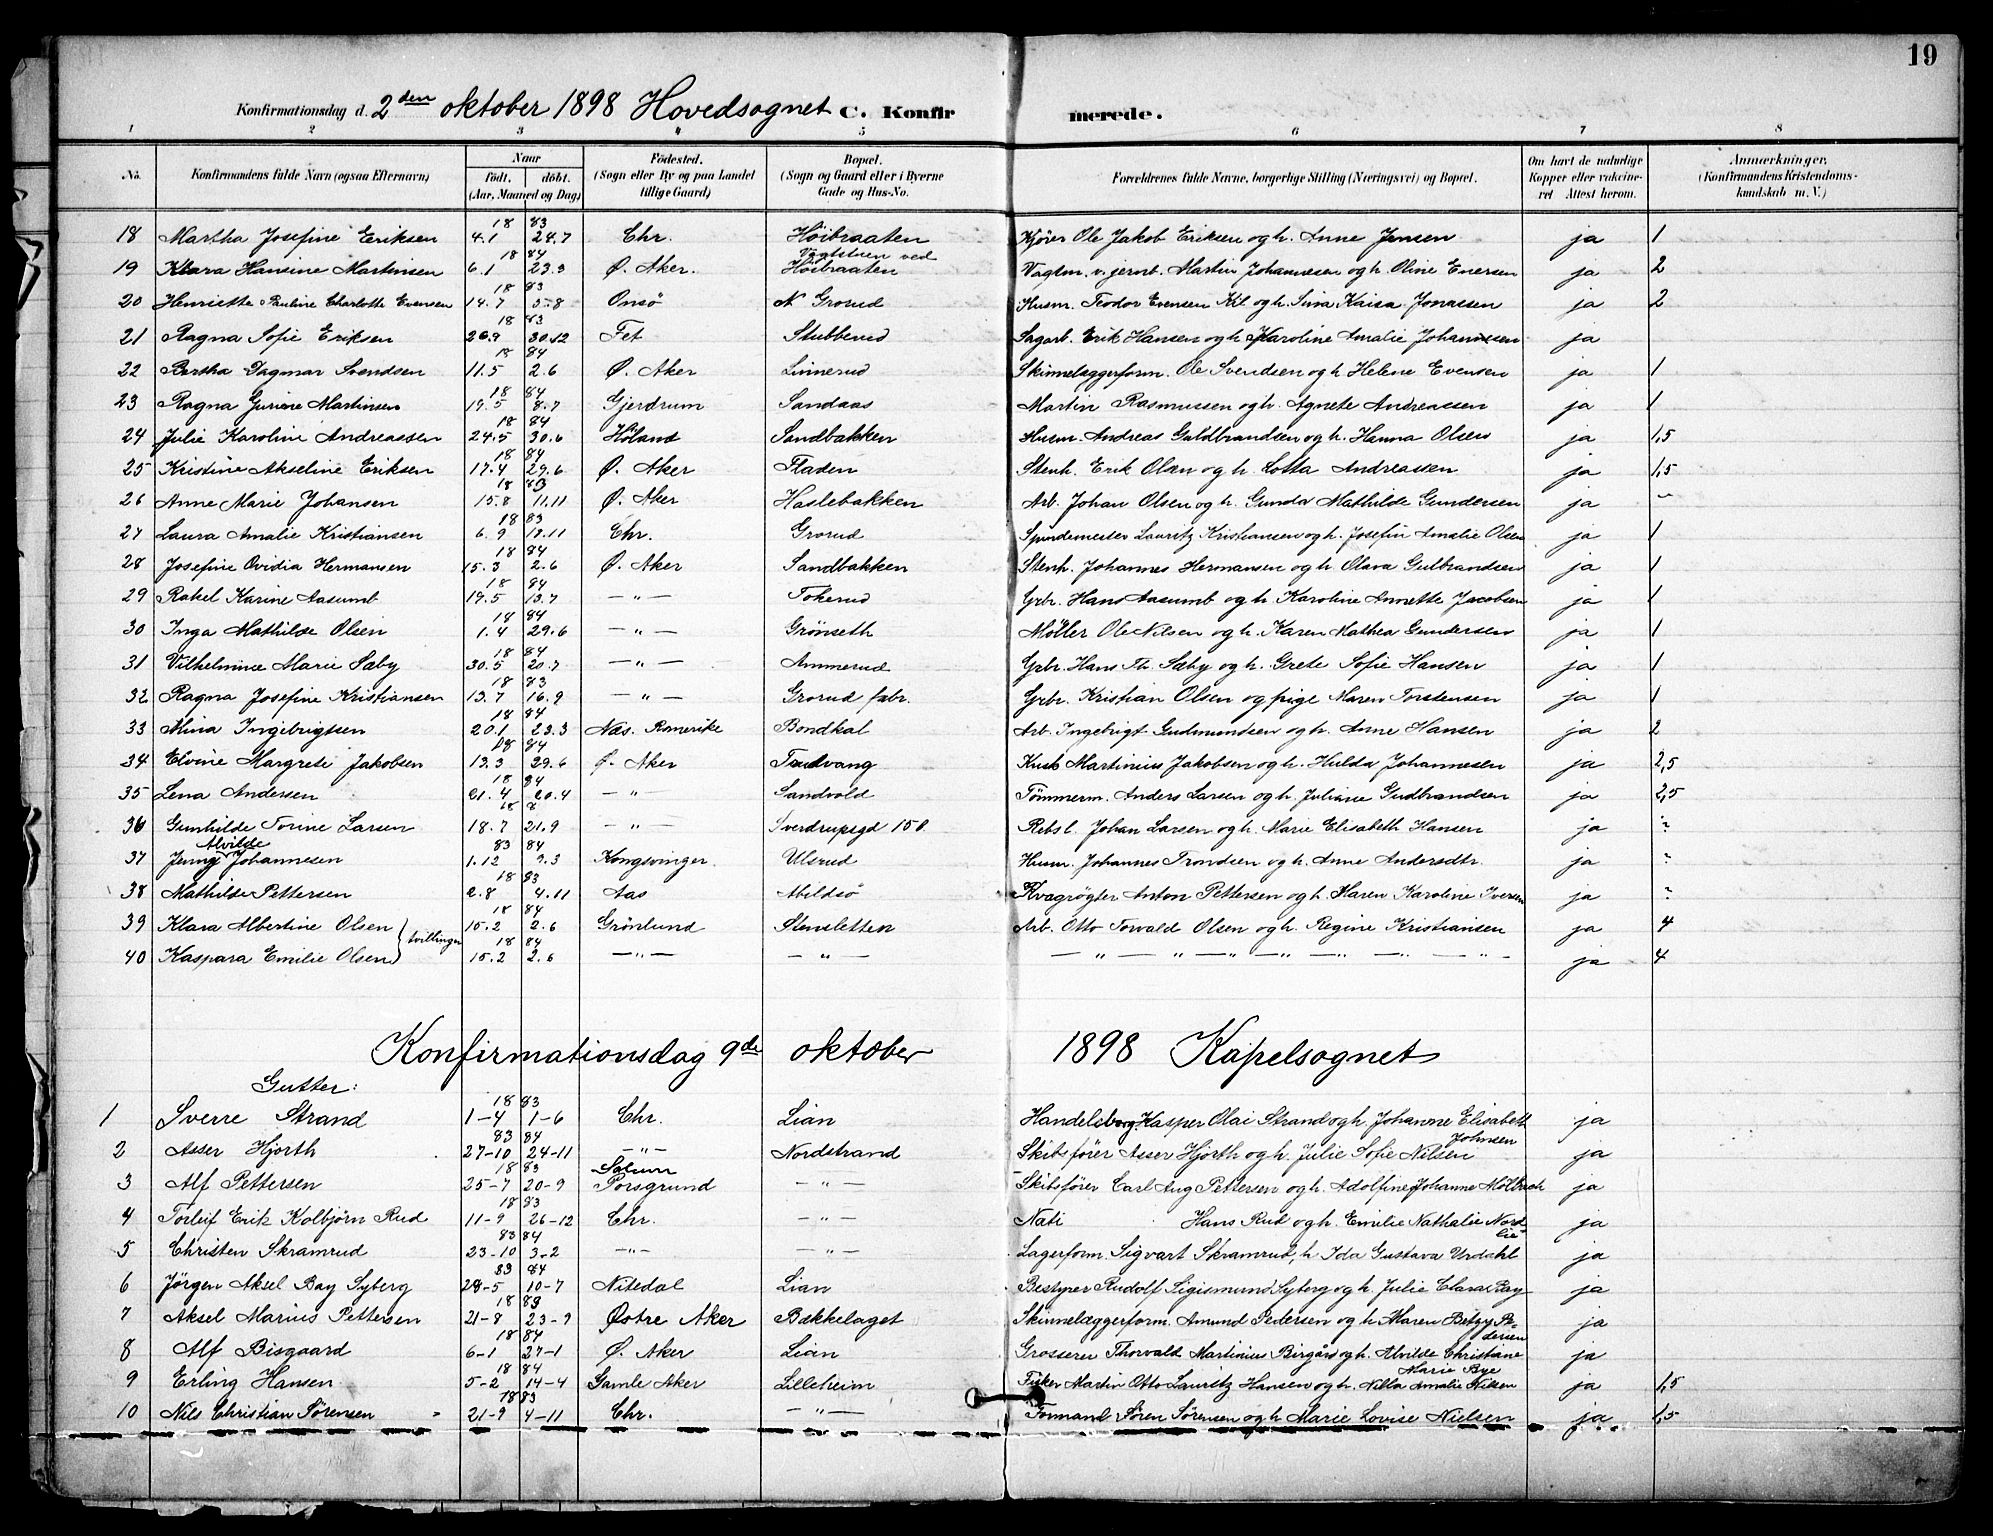 19
Konfirmationsdag d. 2den oktober 1898 Hovedsognet C. Konfirmerede.
1 2 3 4 5 6 7 8
No. Konfirmandens fulde Navn (ogsaa Efternavn) Naar født. døbt. (Aar, Maaned og Dag) Fødested. (Sogn eller By og paa Landet tillige Gaard) Bopæl. (Sogn og Gaard eller i Byerne Gade og Hus-No. Forældrenes fulde Navne, borgerlige Stilling (Næringsvei) og Bopæl. Om havt de naturlige Kopper eller vakcineret Attest herom. Anmærkninger. (Konfirmandens Kristendomskundskab m. V.)
18 Martha Josefine Eriksen 18 83 4.1 24.7 Chr. Höibraaten Kjörer Ole Jakob Eriksen og h. Anne Jensen ja 1
19 Klara Hansine Martinsen 18 84 6.1 23.3 Ø. Aker. Vagtstuen ved Höibraaten Vagtm. v. jernb. Martin Johannesen og h. Oline Enersen ja 2
20 Henriette Pauline Charlotte Evensen 18 83 14.7 5.8 Onsö N Grorud Husm. Teodor Evensen Kil og h. Sina Kaisa Jonassen ja 2
21 Ragna Sofie Eriksen 18 83 26.9 30.12 Fet Stubberud Sagarb. Erik Hansen og h Karoline Amalie Johannesen ja
22 Bertha Dagmar Svendsen 18 84 11.5 2.6 Ø. Aker Linnerud Skinnelæggerform. Ole Svendsen og h Helene Evensen ja 1
23 Ragna Guriene Martinsen 18 84 19.5 8.7 Gjerdrum Sandaas Martin Rasmussen og h. Agnete Andreassen ja 1
24 Julie Karoline Andreassen 18 84 24.5 30.6 Höland Sandbakken Husm. Andreas Guldbrandsen og h. Hanna Olsen ja 1,5
25 Kristine Akseline Eriksen 18 84 17.4 29.6 Ø. Aker Fladen Stenh. Erik Olsen og h. Lotta Andreassen ja 1,5
26 Anne Marie Johansen 18 83 15.8 11.11 Ø. Aker Haslebakken Arb. Johan Olsen og h. Gunda Mathilde Gundersen ja
27 Laura Amalie Kristiansen 18 83 6.9 18.11 Chr. Grorud Spindemester Lauritz Kristiansen og h. Josefin Amalie Olsen ja 1
28 Josefine Ovidia Hermansen 18 84 15.3 2.6 Ø. Aker Sandbakken Stenh. Johannes Hermansen og h. Olava Gulbrandsen ja 1
29 Rakel Karine Aasumb 18 84 19.5 13.7 — " — Tokerud Grbr. Hans Aasumb og h. Karoline Annette Jacobsen ja 1
30 Inga Mathilde Olsen 18 84 1.4 29.6 — " — Grönseth Möller Ole Nilsen og h. Karen Mathea Gundersen ja 1
31 Vilhelmine Marie Sæby 18 84 30.5 20.7 — " — Ammerud Grbr. Hans Th. Sæby og h. Grete Sofie Hansen ja 1
32 Ragna Josefine Kristiansen 18 83 13.7 16.9 — " — Grorud fabr. Grbr. Kristian Olsen og pige Maren Torstensen ja 1
33 Mina Ingebrigtsen 18 84 20.1 23.3 Næs. Romerike Bondkal Arb. Ingebrigt Gudmundsen og h. Anne Hansen ja 2
34 Elvine Margrete Jakobsen 18 84 13.3 29.6 Ø. Aker Trudvang Kusk Martinius Jakobsen og h. Hulda Johannesen ja 2,5
35 Lena Andersen 18 84 21.4 20.4 — " — Sandvold Tömmerm. Anders Larsen og h. Juliane Gudbrandsen ja 2,5
36 Gunhilde Torine Larsen 18 8 18.7 21.9 — " — Sverdrupsgd 15 b. Rebsl. Johan Larsen og h. Marie Elisabeth Hansen ja ?
37 Jenny Alvilde Johannesen 83 84 1.12 9.3 Kongsvinger. Ulsrud Husm. Johannes Trondsen og h. Anne Andersdtr. ja ?
38 Mathilde Pettersen 18 83 2.8 4.11 Aas Abildsö Kvægrögter Anton Pettersen og h. Maren Karoline Iversen ja ?
39 Klara Albertine Olsen } tvillinger 18 84 15.2 2.6 Grönlund Stensletten Arb. Otto Torvald Olsen og h. Regine Kristiansen ja 4
40 Kaspara Emilie Olsen 18 84 15.2 2.6 — " — — " — — " — " — " — " — " — " — ja 4
Konfirmationsdag 9de oktober 1898 Kapelsognet
Gutter:
1 Sverre Strand 18 83 1-4 1-6 Chr. Lian Handelsborg. Kasper Olai Strand og h. Johanne Elisabeth Johnsen ja
2 Asser Hjorth 83 84 27-10 24-11 — " — Nordstrand Skibsfører Asser Hjorth og h. Julie Sofie Nilsen ja
3 Alf Pettersen 18 83 25-7 20-9 Solum Porsgrund — " — Skibsfører Carl Aug Pettersen og h. Adolfine Johanne Mölbach ja
4 Torleif Erik Kolbjörn Rud 18 83 11-9 26-12 Chr. — " — Nati Hans Rud og h. Emilie Nathalie Nordlie ja
5 Christen Skramrud 83 84 23-10 3-2 — " — — " — Lagerform. Sigvart Skramrud, h Ida Gustava Urdahl ja
6 Jørgen Aksel Bay Syberg 83 84 28-5 10-7 Nitedal Lian Bestyrer Rudolf Sigismund Syberg og h. Julie Clara Bay ja
7 Aksel Marius Pettersen 18 83 21-8 23-9 Østre Aker Bækkelaget Skinnelæggerform. Amund Pedersen og h Maren Betzy Pedersen ja
8 Alf Bisgaard 18 84 6-1 27-1 Ø. Aker Lian Grosserer Thorvald Martinius Birgård og h. Alvilde Christiane Marie Bye ja
9 Erling Hansen 18 84 5-2 14-4 Gamle Aker Lilleheim Fisker Martin Otto Lauritz Hansen og h. Nilla Amalie Nilsen ja 1,5
10 Nils Christian Sörensen 18 83 21-9 4-11 Chr. — " — Formand Søren Sørensen og h Marie Lovise Nielsen ja 1,5